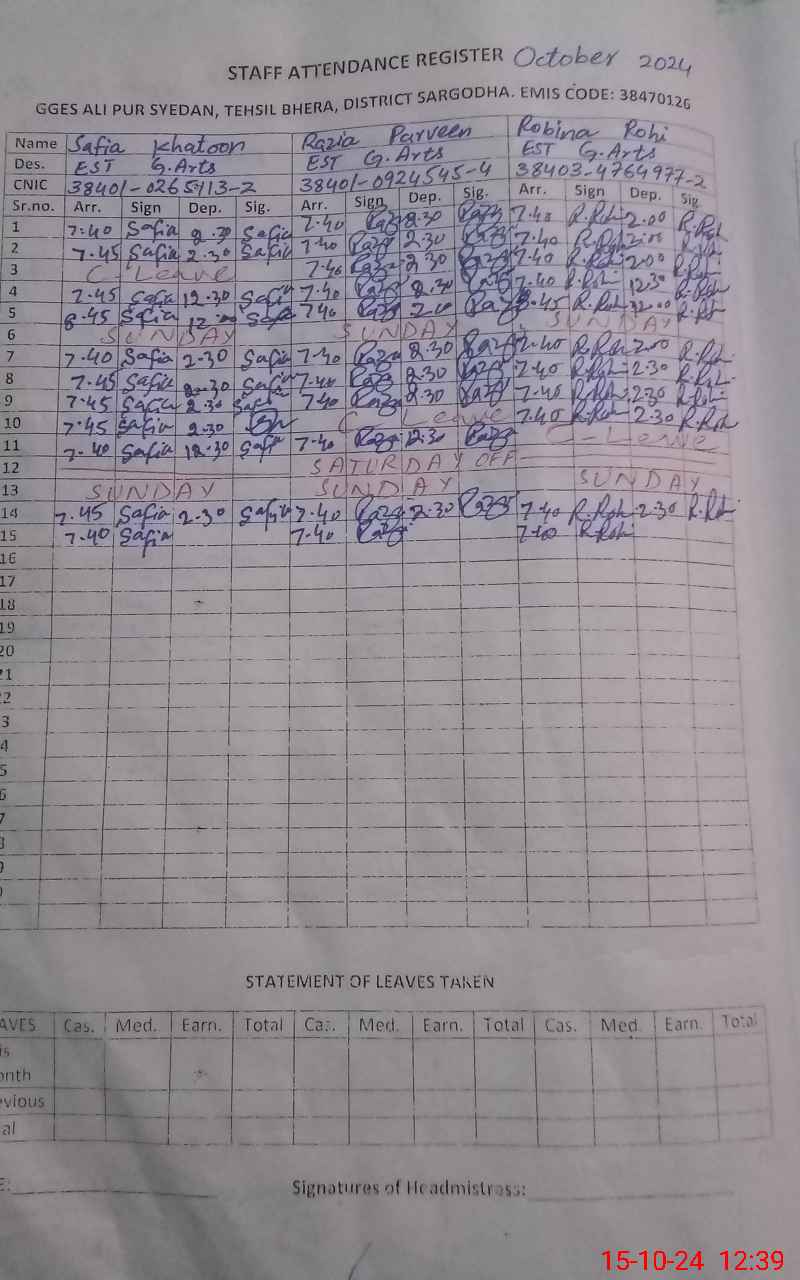 STAFF ATTENDANCE REGISTER October 2024
GGES ALI PUR SYEDAN, TEHSIL BHERA, DISTRICT SARGODHA. EMIS CODE: 38470126
Name Safia Khatoon Razia Parveen Robina Rohi
Des. EST G.Arts EST G.Arts EST G.Arts
CNIC 38401-0265113-2 38401-0924545-4 38403-4764977-2
Sr.no. Arr. Sign Dep. Sig. Arr. Sign Dep. Sig. Arr. Sign Dep. Sig
1 7.40 Safia 2.30 Safia 7.40 2.30 7.40 R.Rohi 2.00 R.Roh
2 7.45 Safia 2.30 Safia 7.40 2.30 7.40 R.Rohi 2.00 R.Roh
3 C-Leave 7.40 2.30 7.40 R.Rohi 2.00 R.Roh
4 7.45 Safia 12.30 Safi 7.40 7.40 R.Rohi 12.30 R.Roh
5 8.45 Safia Safi 7.40 2.00 R.Rohi R.Roh
6 SUNDAY SUNDAY SUNDAY
7 7.40 Safia 2.30 Safia 7.40 2.30 7.40 R.Rohi 2.00 R.Roh
8 7.45 Safia 2.30 Safia 7.40 2.30 7.40 R.Rohi 2.30 R.Roh
9 7.45 Safia 2.30 Safia 7.40 2.30 7.40 R.Rohi 2.30 R.Rohi
10 7.45 Safia 2.30 C-Leave 7.40 R.Rohi 2.30 R.Roh
11 7.40 Safia 12.30 Safi 7.40 12.30 C-Leave
12 SATURDAY OFF
13 SUNDAY SUNDAY SUNDAY
14 7.45 Safia 2.30 Safia 7.40 2.30 7.40 R.Roh 2.30 R.Roh
15 7.40 Safia 7.40 7.40 R.Rohi
16
17
18
19
20
21
2
3
4
5
6
7
8
9
0
STATEMENT OF LEAVES TAKEN
AVES Cas. Med. Earn. Total Cas. Med. Earn. Total Cas. Med. Earn. Total
is
onth
evious
al
E: Signatures of Headmistress:
15-10-24 12:39